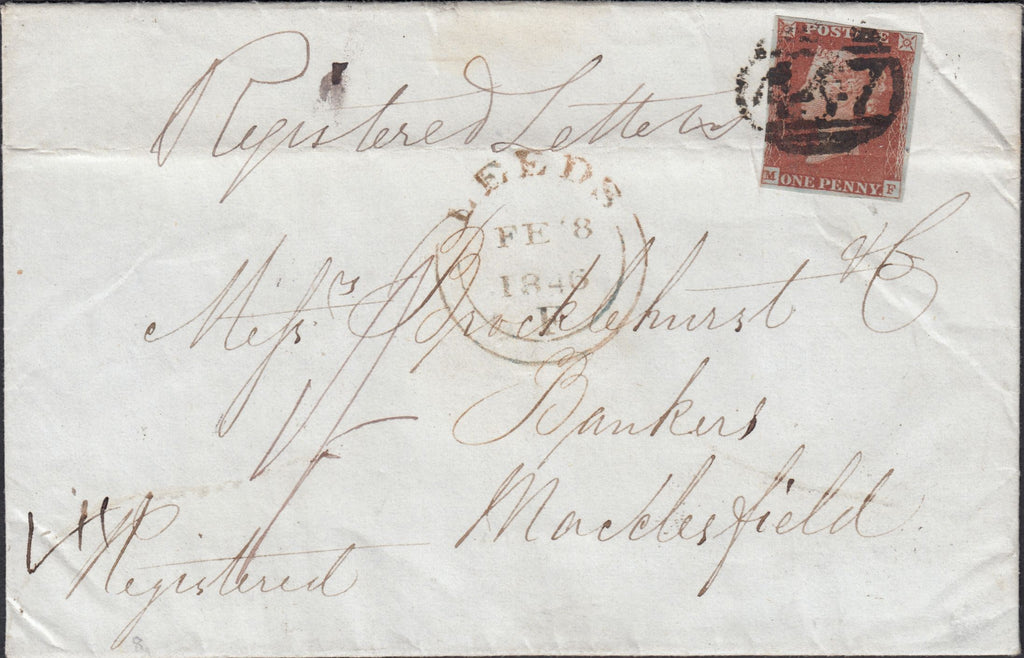 POSTAGE
Registered Letter
447
M ONE PENNY. F
LEEDS
FE 8
1846
F
Messrs Brocklehurst & C
Bankers
Macclesfield
1/
Registered
8